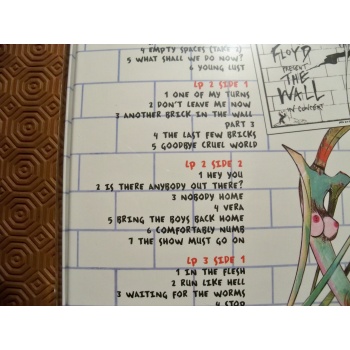 4 EMPTY SPACES (TAKE 1)
5 WHAT SHALL WE DO NOW?
6 YOUNG LUST
LP 2 SIDE 1
1 ONE OF MY TURNS
2 DON'T LEAVE ME NOW
3 ANOTHER BRICK IN THE WALL
PART 3
4 THE LAST FEW BRICKS
5 GOODBYE CRUEL WORLD
LP 2 SIDE 2
1 HEY YOU
2 IS THERE ANYBODY OUT THERE?
3 NOBODY HOME
4 VERA
5 BRING THE BOYS BACK HOME
6 COMFORTABLY NUMB
7 THE SHOW MUST GO ON
LP 3 SIDE 1
1 IN THE FLESH
2 RUN LIKE HELL
3 WAITING FOR THE WORMS
4 STOP
FLOYD
PRESENT
THE
WALL
IN CONCERT